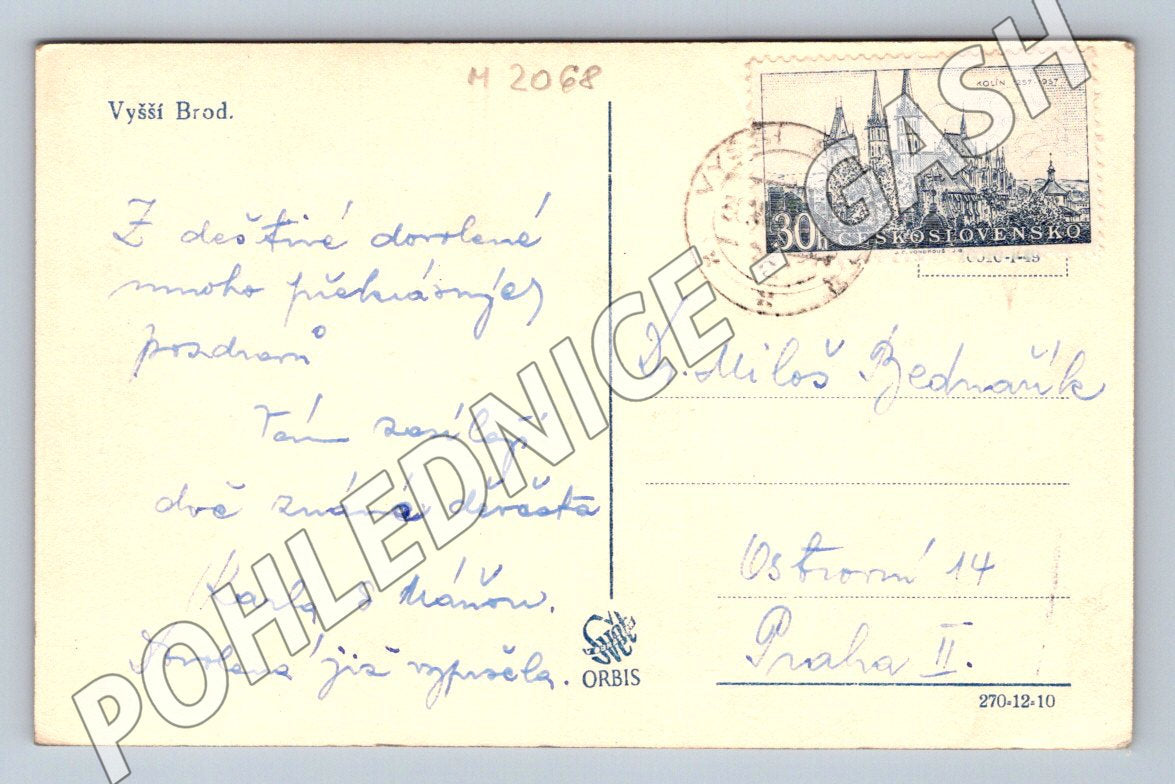 M 2068
Vyšší Brod.
Z deštivé dovolené
mnoho překrásných
pozdravů
Vám zasílají
dvě známá děvčata
Karla s Máňou.
Dovolená již vypršela.
Svět
ORBIS
KOLÍN 1257-1957
30h ČESKOSLOVENSKO
VYŠŠÍ
Dr. Miloš Bednařík
Ostrovní 14
Praha II.
270-12-10
POHLEDNICE - GASH